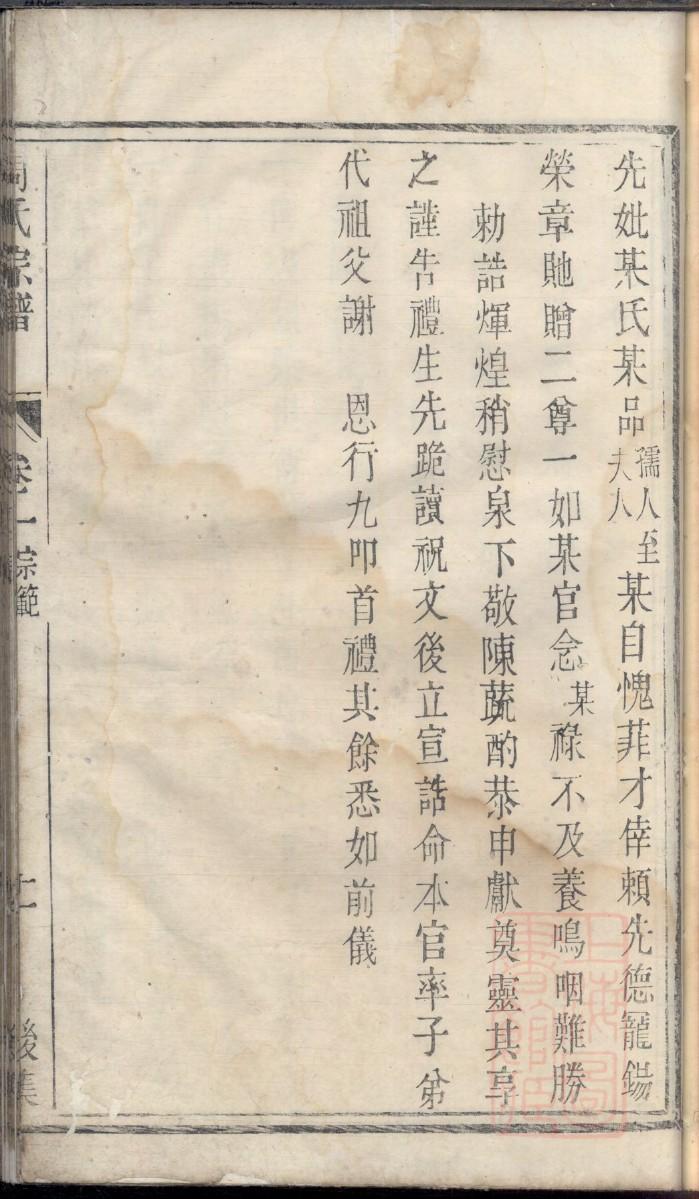 先妣某氏某品孺人夫人至某自愧菲才倖賴先德寵錫
榮章貤贈二尊一如某官念某祿不及養嗚咽難勝
勅誥煇煌稍慰泉下敬陳蔬酌恭申獻奠靈其享
之謹告禮生先跪讀祝文後立宣誥命本官率子弟
代祖父謝　恩行九叩首禮其餘悉如前儀
氏宗譜
卷一
宗範